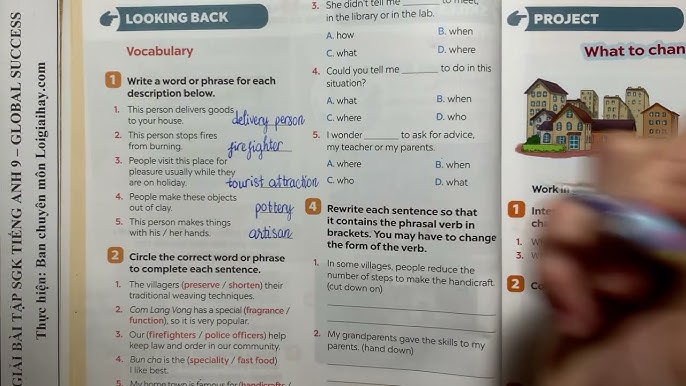 GIẢI BÀI TẬP SGK TIẾNG ANH 9 – GLOBAL SUCCESS
Thực hiện: Ban chuyên môn Loigiaihay.com
LOOKING BACK
Vocabulary
1 Write a word or phrase for each
description below.
1. This person delivers goods
to your house. delivery person
2. This person stops fires
from burning. firefighter
3. People visit this place for
pleasure usually while they
are on holiday. tourist attraction
4. People make these objects
out of clay. pottery
5. This person makes things
with his / her hands. artisan
2 Circle the correct word or phrase
to complete each sentence.
1. The villagers (preserve / shorten) their
traditional weaving techniques.
2. Com Lang Vong has a special (fragrance /
function), so it is very popular.
3. Our (firefighters / police officers) help
keep law and order in our community.
4. Bun cha is the (speciality / fast food)
I like best.
5. My home town is famous for (handicrafts /
3. She didn't tell me ______ to meet,
in the library or in the lab.
A. how B. when
C. what D. where
4. Could you tell me ______ to do in this
situation?
A. what B. when
C. where D. who
5. I wonder ______ to ask for advice,
my teacher or my parents.
A. where B. when
C. who D. what
4 Rewrite each sentence so that
it contains the phrasal verb in
brackets. You may have to change
the form of the verb.
1. In some villages, people reduce the
number of steps to make the handicraft.
(cut down on)
2. My grandparents gave the skills to my
parents. (hand down)
PROJECT
What to chan
Work in
1 Inte
1. W
3. W
2 Co